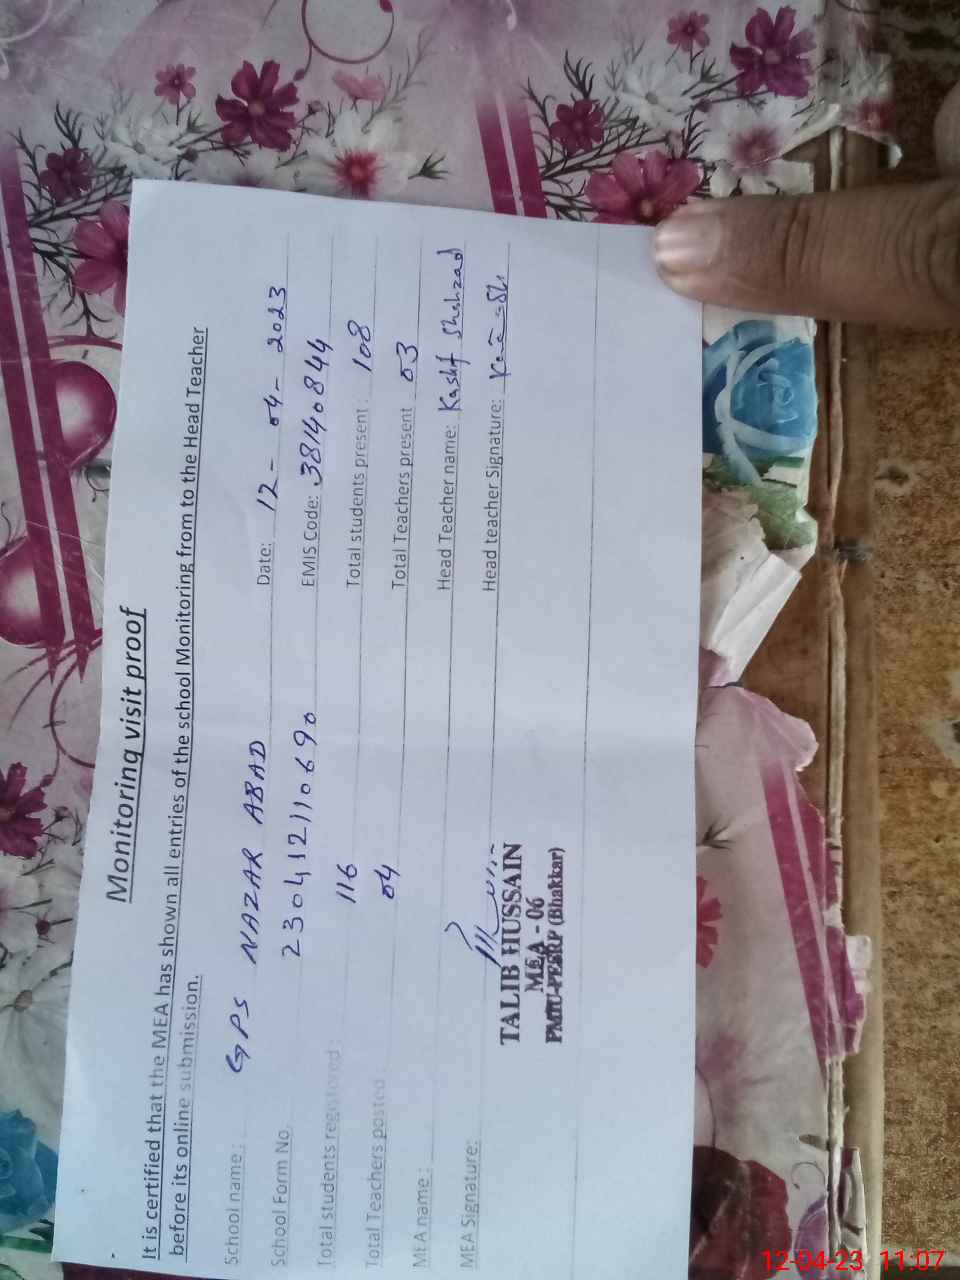 Monitoring visit proof
It is certified that the MEA has shown all entries of the school Monitoring from to the Head Teacher
before its online submission.
School name: GPS NAZAR ABAD Date: 12-04-2023
School Form No. 230412110690 EMIS Code: 38140844
Total students registored: 116 Total students present: 108
Total Teachers posted: 04 Total Teachers present 03
MEA name: Head Teacher name: Kashf Shahzad
MEA Signature: Head teacher Signature:
TALIB HUSSAIN
MEA - 06
PMIU-PESRP (Bhakkar)
12-04-23 11:07